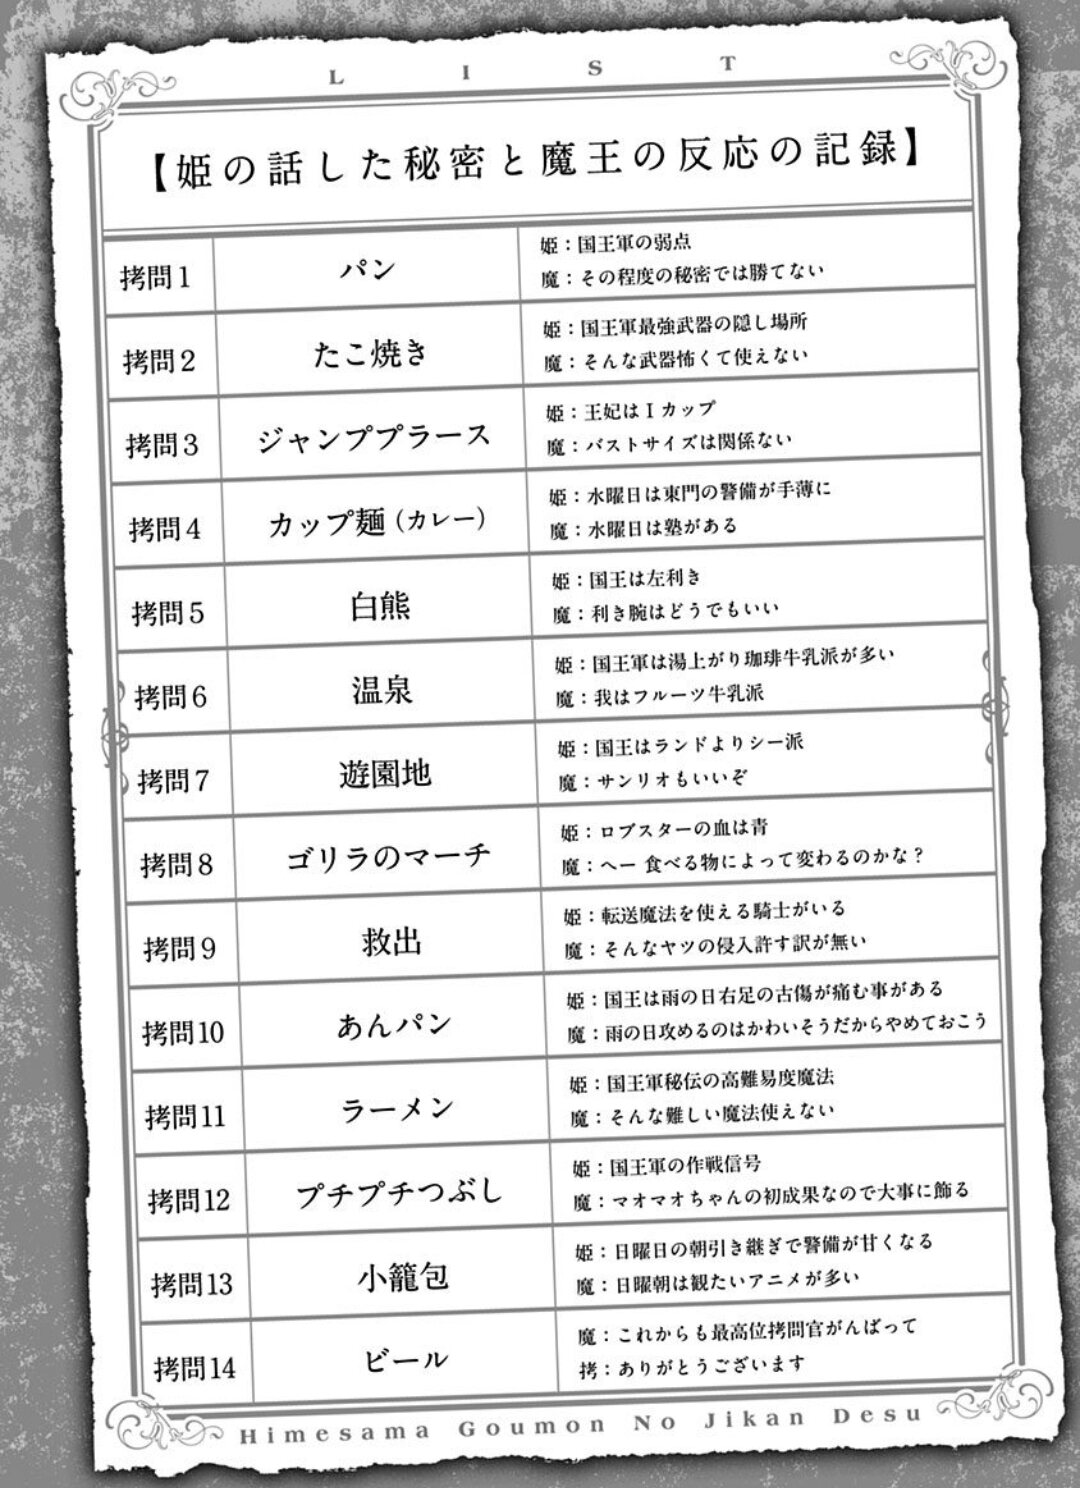 LIST
【姫の話した秘密と魔王の反応の記録】
拷問1
パン
姫：国王軍の弱点
魔：その程度の秘密では勝てない
拷問2
たこ焼き
姫：国王軍最強武器の隠し場所
魔：そんな武器怖くて使えない
拷問3
ジャンププラース
姫：王妃はIカップ
魔：バストサイズは関係ない
拷問4
カップ麺（カレー）
姫：水曜日は東門の警備が手薄に
魔：水曜日は塾がある
拷問5
白熊
姫：国王は左利き
魔：利き腕はどうでもいい
拷問6
温泉
姫：国王軍は湯上がり珈琲牛乳派が多い
魔：我はフルーツ牛乳派
拷問7
遊園地
姫：国王はランドよりシー派
魔：サンリオもいいぞ
拷問8
ゴリラのマーチ
姫：ロブスターの血は青
魔：へー 食べる物によって変わるのかな？
拷問9
救出
姫：転送魔法を使える騎士がいる
魔：そんなヤツの侵入許す訳が無い
拷問10
あんパン
姫：国王は雨の日右足の古傷が痛む事がある
魔：雨の日攻めるのはかわいそうだからやめておこう
拷問11
ラーメン
姫：国王軍秘伝の高難易度魔法
魔：そんな難しい魔法使えない
拷問12
プチプチつぶし
姫：国王軍の作戦信号
魔：マオマオちゃんの初成果なので大事に飾る
拷問13
小籠包
姫：日曜日の朝引き継ぎで警備が甘くなる
魔：日曜朝は観たいアニメが多い
拷問14
ビール
魔：これからも最高位拷問官がんばって
拷：ありがとうございます
Himesama Goumon No Jikan Desu